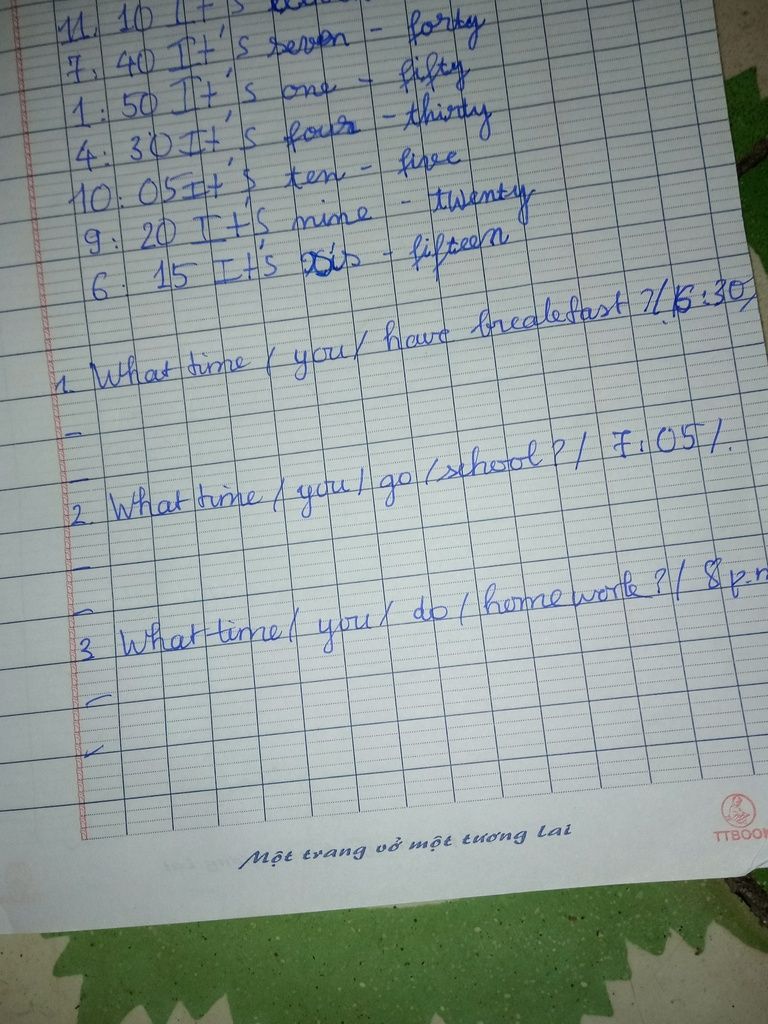 11. 10 It's
7: 40 It's seven - forty
1: 50 It's one - fifty
4: 30 It's four - thirty
10: 05 It's ten - five
9: 20 It's nine - twenty
6: 15 It's six - fifteen
1. What time / you / have breakfast ? / 6:30/
-
-
2. What time / you / go / school ? / 7:05 /.
-
-
3 What time / you / do / home work ? / 8 p.m
-
-
Một trang vở một tương lai
TTBOOK